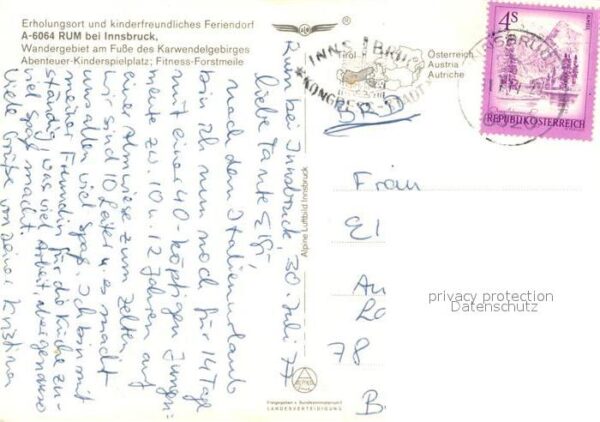 Erholungsort und kinderfreundliches Feriendorf
A-6064 RUM bei Innsbruck,
Wandergebiet am Fuße des Karwendelgebirges
Abenteuer-Kinderspielplatz; Fitness-Forstmeile
Rum bei Innsbruck, 30. Juli 77
liebe Tante Elfi,
nach dem Italienurlaub
bin ich nun noch für 14 Tage
mit einer 40-köpfigen Jungen-
meute zw. 10 u. 12 Jahren auf
eine Almwiese zum Zelten
Wir sind 10 Leiter u. es macht
uns allen viel Spaß. Ich bin mit
meiner Freundin für die Küche zu-
ständig, was viel Arbeit, aber genauso
viel Spaß macht.
Viele Grüße von Deiner Kristina
Alpine Luftbild Innsbruck
Freigegeben v. Bundesministerium f.
LANDESVERTEIDIGUNG
INNSBRUCK
KONGRESS-STADT
Österreich
Austria
Autriche
INNSBRUCK
6020
4S
REPUBLIK ÖSTERREICH
BRD
Frau
El
An
78
B.
privacy protection
Datenschutz